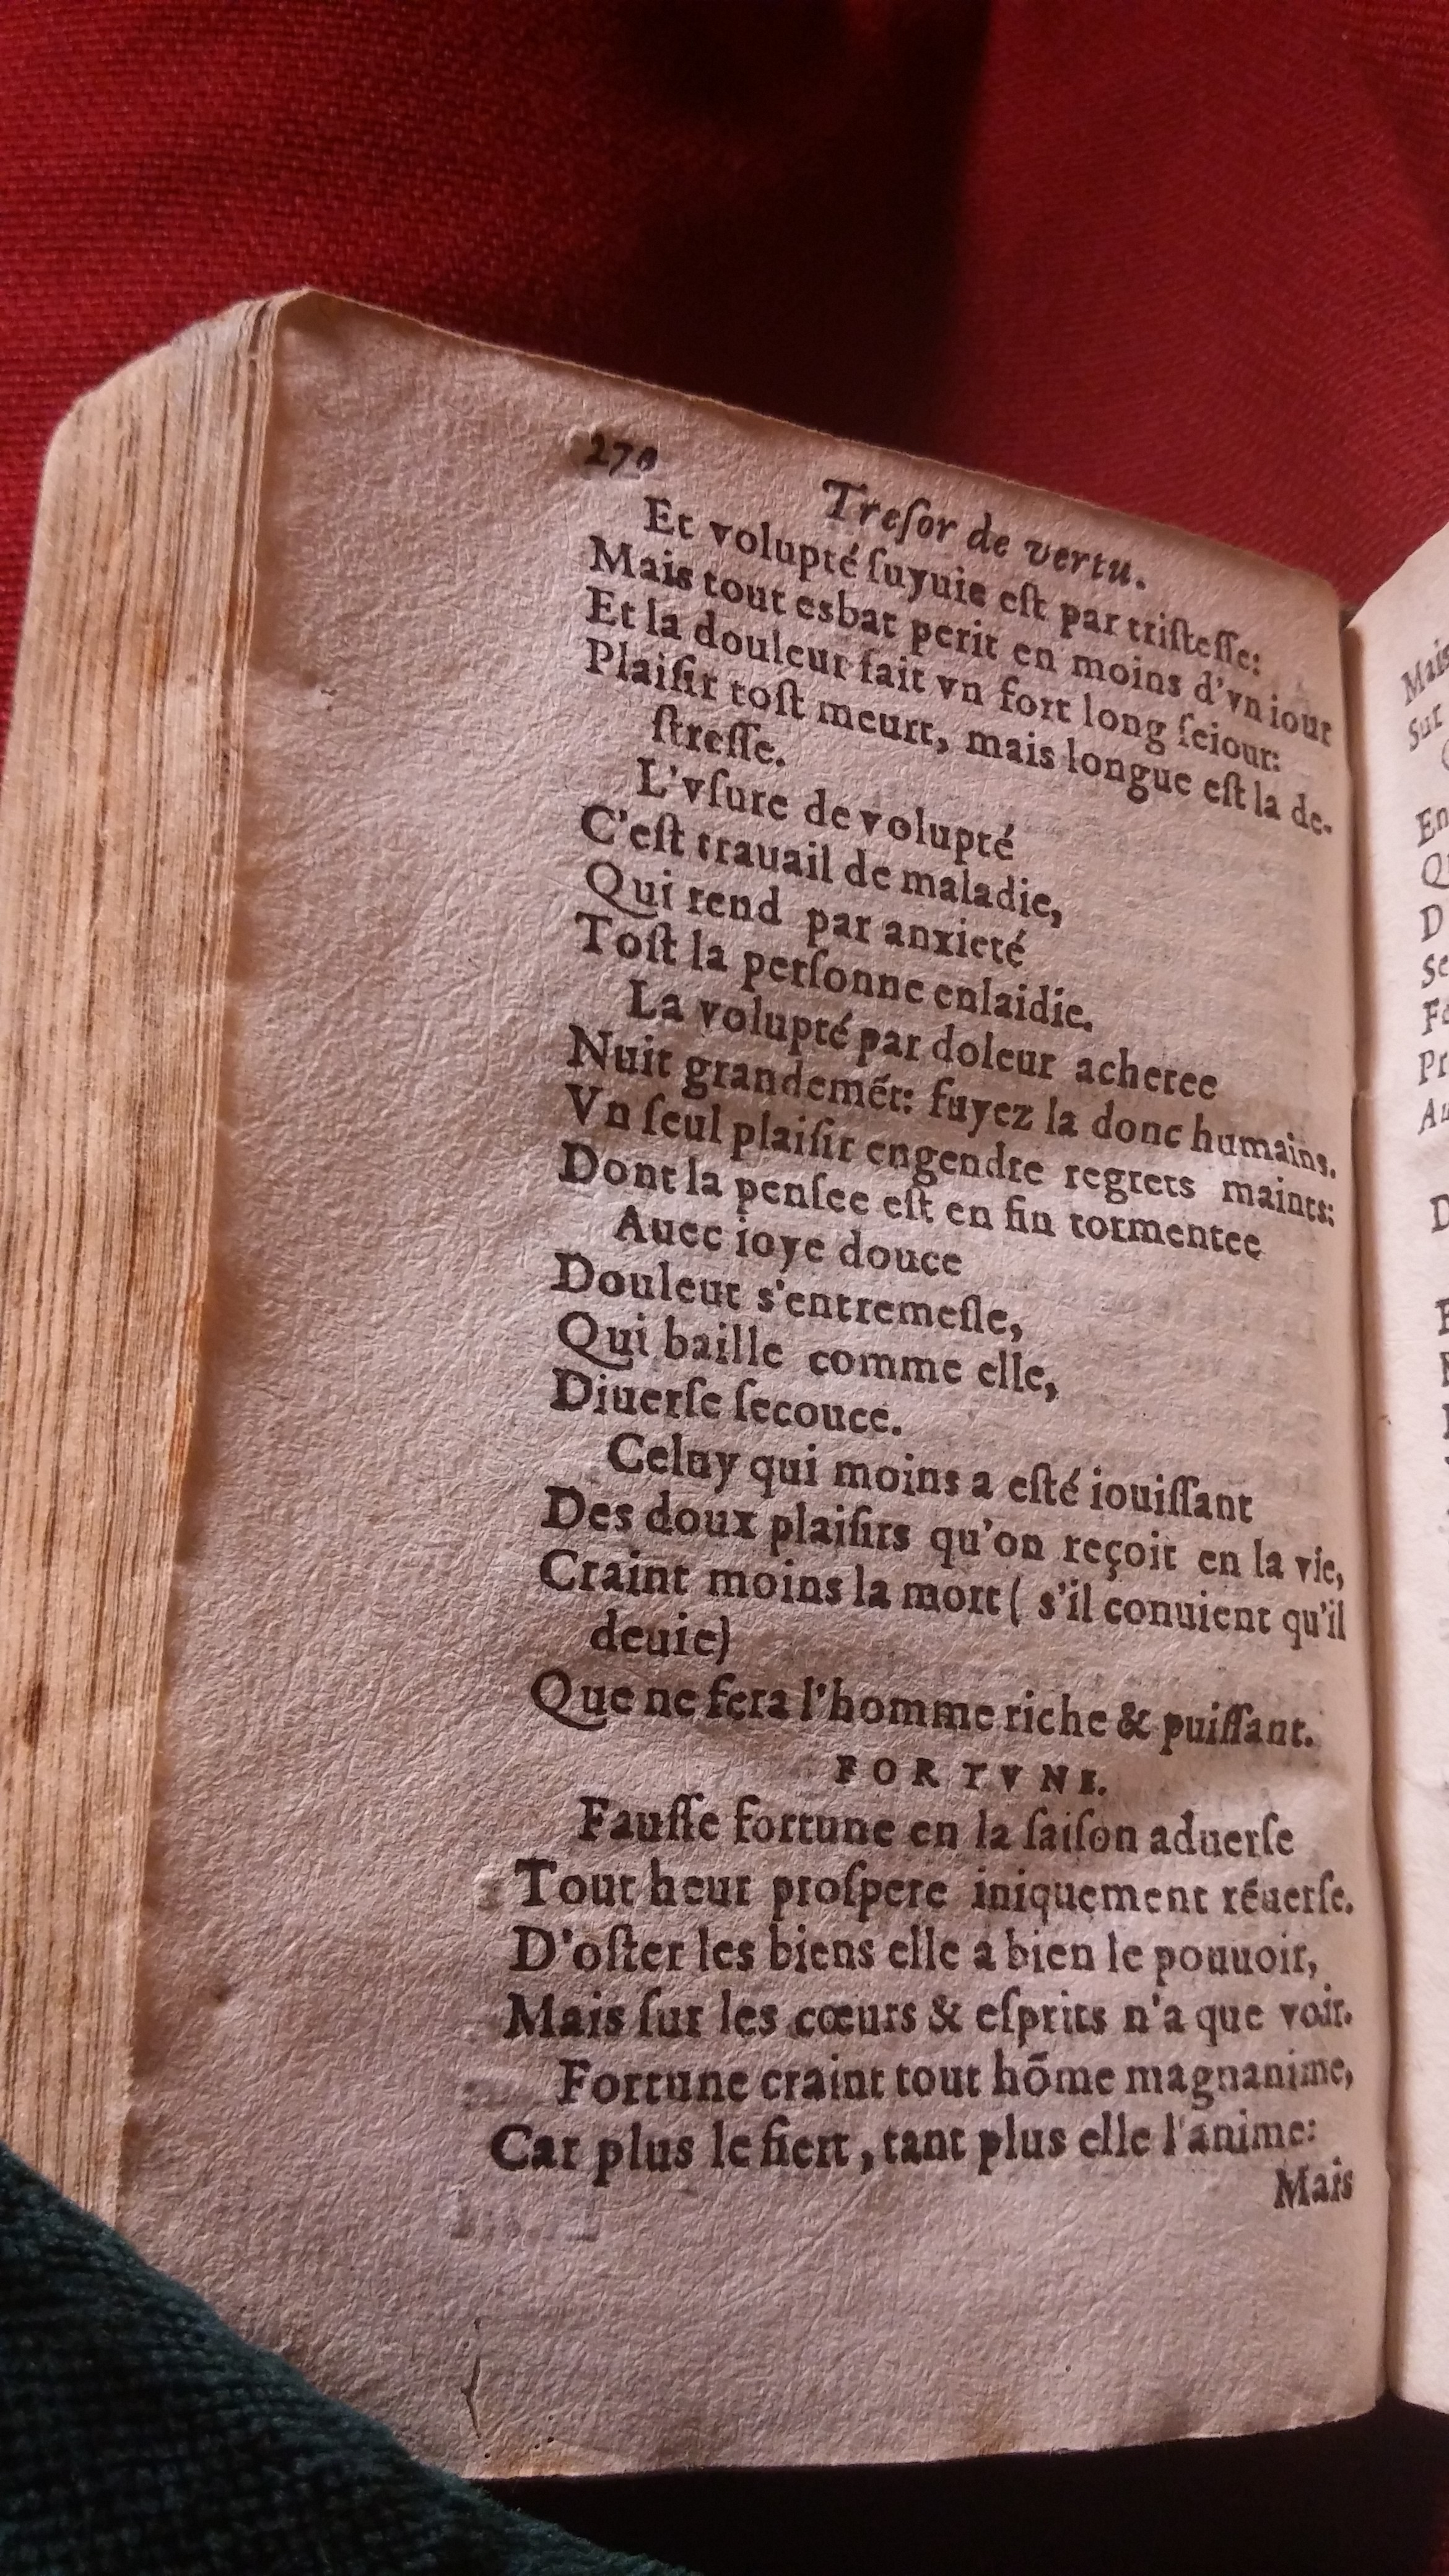 270
Treſor de vertu.
Et volupté ſuyuie eſt par triſteſſe:
Mais tout esbat perit en moins d'vn iour
Et la douleur fait vn fort long ſeiour:
Plaiſir toſt meurt, mais longue eſt la de-
ſtreſſe.
L'vſure de volupté
C'eſt trauail de maladie,
Qui rend par anxieté
Toſt la perſonne enlaidie.
La volupté par doleur achetee
Nuit grandemẽt: fuyez la donc humains.
Vn ſeul plaiſir engendre regrets maints:
Dont la penſee eſt en fin tormentee
Auec ioye douce
Douleur s'entremeſle,
Qui baille comme elle,
Diuerſe ſecouce.
Celuy qui moins a eſté iouiſſant
Des doux plaiſirs qu'on reçoit en la vie,
Craint moins la mort ( s'il conuient qu'il
deuie)
Que ne fera l'homme riche & puiſſant.
FORTVNE.
Fauſſe fortune en la ſaiſon aduerſe
Tout heur proſpere iniquement rẽuerſe.
D'oſter les biens elle a bien le pouuoir,
Mais ſur les cœurs & eſprits n'a que voir.
Fortune craint tout hõme magnanime,
Car plus le fiert, tant plus elle l'anime:
Mais
Mais
Sur
En
Q
D
Se
Fo
Pr
Au
D